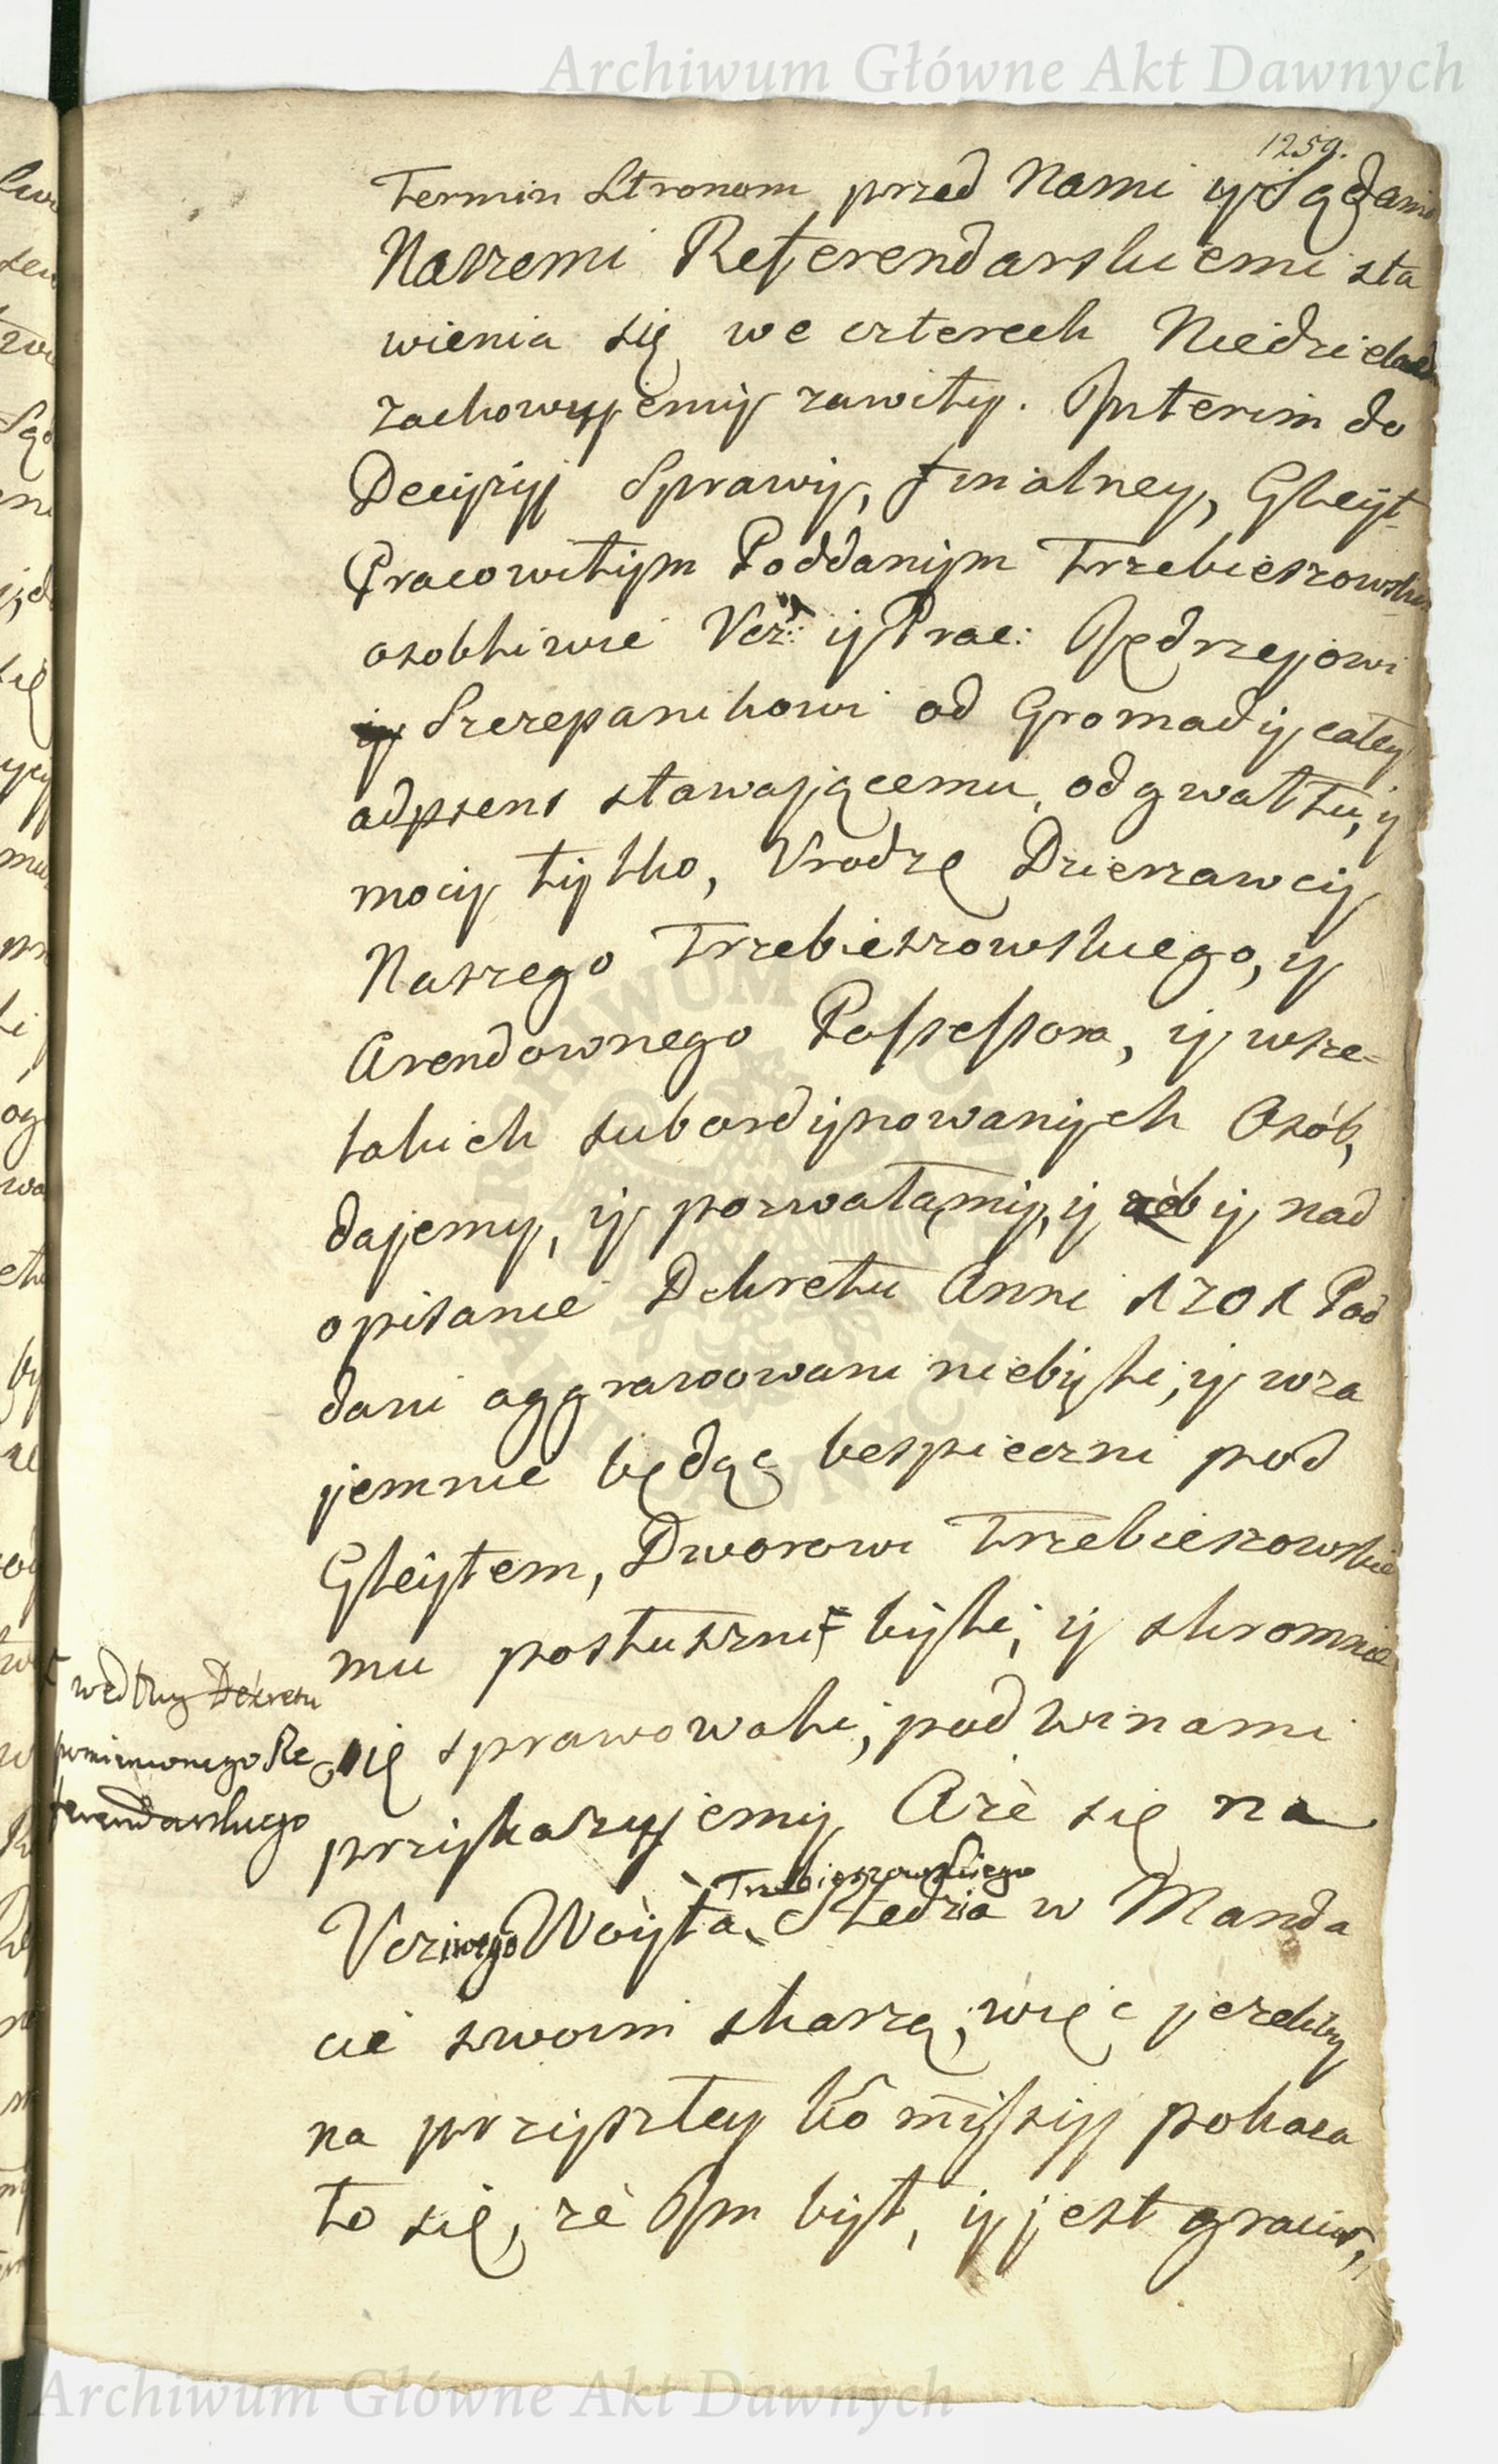 Archiwum Główne Akt Dawnych
1259.
Termin Stronom przed Nami y Sądami
Naszemi Referendarskiemi sta
wienia się we czterech Niedzielach
zachowujemy zawity. Interim do
Decyzyi Sprawy, finalney, Gleyt
Pracowitym Poddanym Trzebieszowskim
osobliwie Ucz: y Prac: Jędrzejowi
Szczepanikowi od Gromady całey
adpsens stawającemu, od gwałtu, y
mocy tylko, Urodzę Dzierzawcy
Naszego Trzebieszowskiego, y
Arendownego Possessora, y wsze=
lakich subordynowanych Osób,
dajemy, y pozwalamy, y żeby nad
opisanie Dekretu Anni 1701 Pod
dani aggrawowani niebyli, y wza
jemnie będąc bespieczni pod
Gleytem, Dworowi Trzebieszowskie
mu posłuszni byli, y skromnie
według Dekretu
pomienionego Re
ferendarskiego
się sprawowali, pod winami
przykazujemy Aże się na
Trzebieszowskiego
Ucziwego Woyta Sledzia w Manda
cie swoim skarzą, więc jezeliby
na przyszłey Kommissyi pokaza
ło się, że Im był, y jest
Archiwum Główne Akt Dawnych